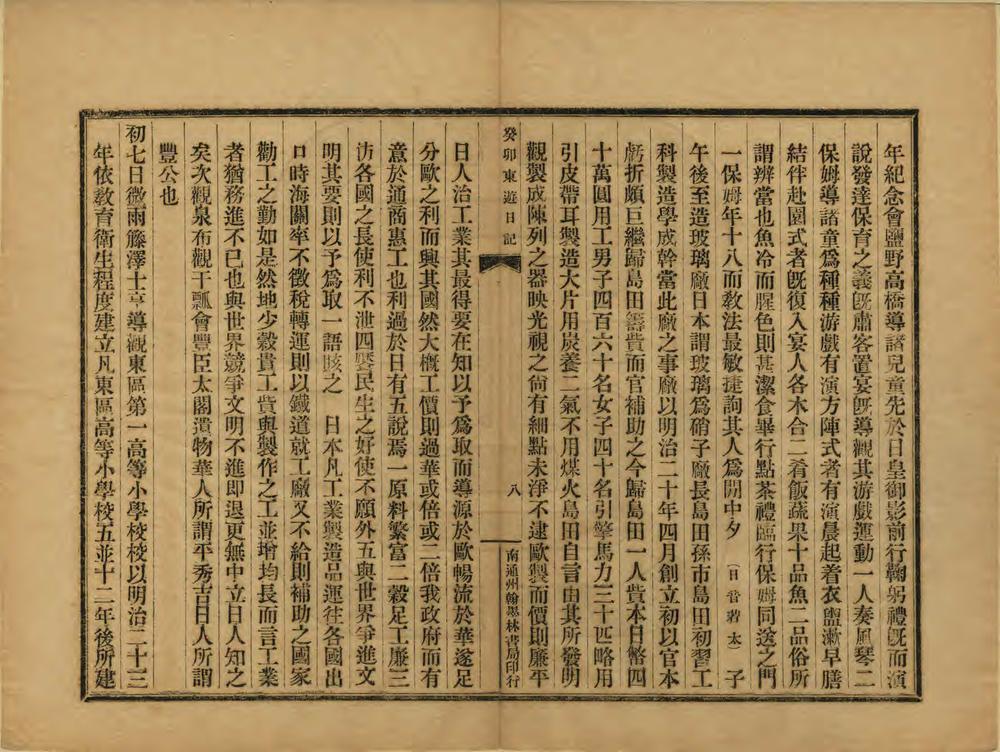 年紀念會鹽野高橋導諸兒童先於日皇御影前行鞠躬禮既而演
說發達保育之義既肅客置宴既導觀其游戲運動一人奏風琴二
保姆導諸童爲種種游戲有演方陣式者有演晨起着衣盥漱早膳
結伴赴園式者既復入宴人各木合二肴飯蔬果十品魚二品俗所
謂辨當也魚冷而腥色則甚潔食畢行點茶禮臨行保姆同送之門
一保姆年十八而教法最敏捷詢其人爲開中夕(日音若太)子
午後至造玻璃廠日本謂玻璃爲硝子廠長島田孫市島田初習工
科製造學成幹當此廠之事廠以明治二十年四月創立初以官本
虧折頗巨繼歸島田籌貲而官補助之今歸島田一人貲本日幣四
十萬圓用工男子四百六十名女子四十名引擎馬力三十匹略用
引皮帶耳製造大片用炭養二氣不用煤火島田自言由其所發明
觀製成陳列之器映光視之尙有細點未淨不逮歐製而價則廉平
癸卯東遊日記
八
南通州翰墨林書局印行
日人治工業其最得要在知以予爲取而導源於歐暢流於華遂足
分歐之利而興其國然大槪工價則過華或倍或二倍我政府而有
意於通商惠工也利過於日有五說焉一原料繁富二穀足工廉三
汸各國之長使利不泄四饜民生之好使不願外五與世界爭進文
明其要則以予爲取一語賅之 日本凡工業製造品運往各國出
口時海關率不徵稅轉運則以鐵道就工廠又不給則補助之國家
勸工之勤如是然地少穀貴工貲與製作之工並增均長而言工業
者猶務進不已也與世界競爭文明不進即退更無中立日人知之
矣次觀泉布觀干瓢會豐臣太閤遺物華人所謂平秀吉日人所謂
豐公也
初七日微雨籐澤士亨導觀東區第一高等小學校校以明治二十三
年依教育衛生程度建立凡東區高等小學校五並十二年後所建